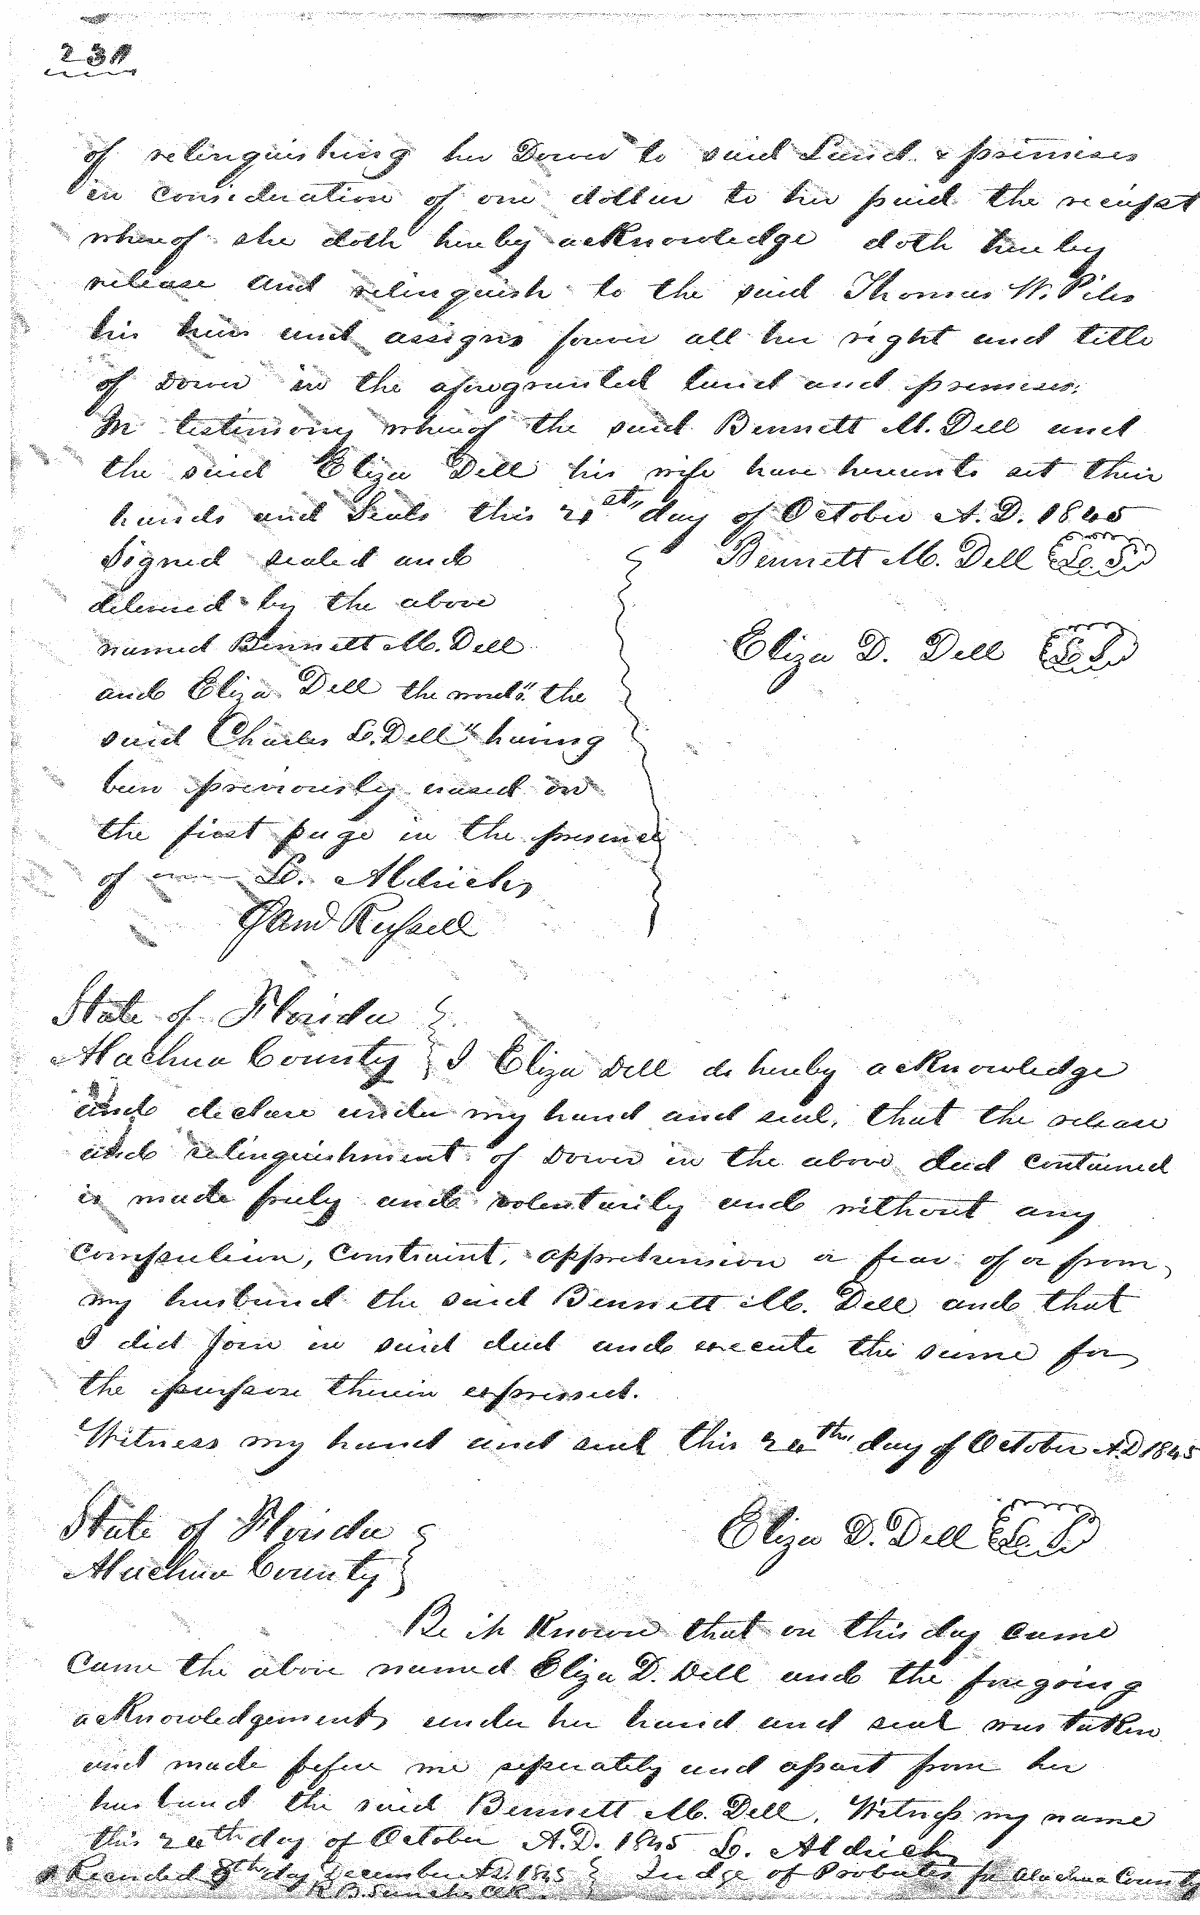 of relinquishing her Dower to said Land & premises
in consideration of one dollar to her paid the receipt
whereof she doth hereby acknowledge doth hereby
release and relinquish to the said Thomas W. Piles
his heirs and assigns forever all her right and title
of Dower in the aforegranted land and premises,
In testimony whereof the said Bennett M. Dell and
the said Eliza Dell his wife have hereunto set their
hands and Seals this day of October A.D. 1845
Signed sealed and
delivered by the above
named Bennett M. Dell
and Eliza Dell the words "the
said Charles L. Dell" having
been previously erased on
the first page in the presence
of L. Aldrich,
Russell
Bennett M. Dell L. S.
Eliza D. Dell L. S.
State of Florida
Alachua County } I Eliza Dell do hereby acknowledge
and declare under my hand and seal, that the release
and relinquishment of Dower in the above deed contained
is made freely and voluntarily and without any
compulsion, constraint, apprehension or fear of or from,
my husband the said Bennett M. Dell and that
I did join in said deed and execute the same for
the purpose therein expressed.
Witness my hand and seal this day of October A.D 1845
Eliza D. Dell L. S.
State of Florida
Alachua County }
Be it Known that on this day came
came the above named Eliza D. Dell and the foregoing
acknowledgement under her hand and seal was taken
and made before me seperately and apart from her
husband the said Bennett M. Dell. Witness my name
this day of October A.D. 1845 L. Aldrich
Judge of Probates for Alachua County
Recorded 8th day December A.D. 1845